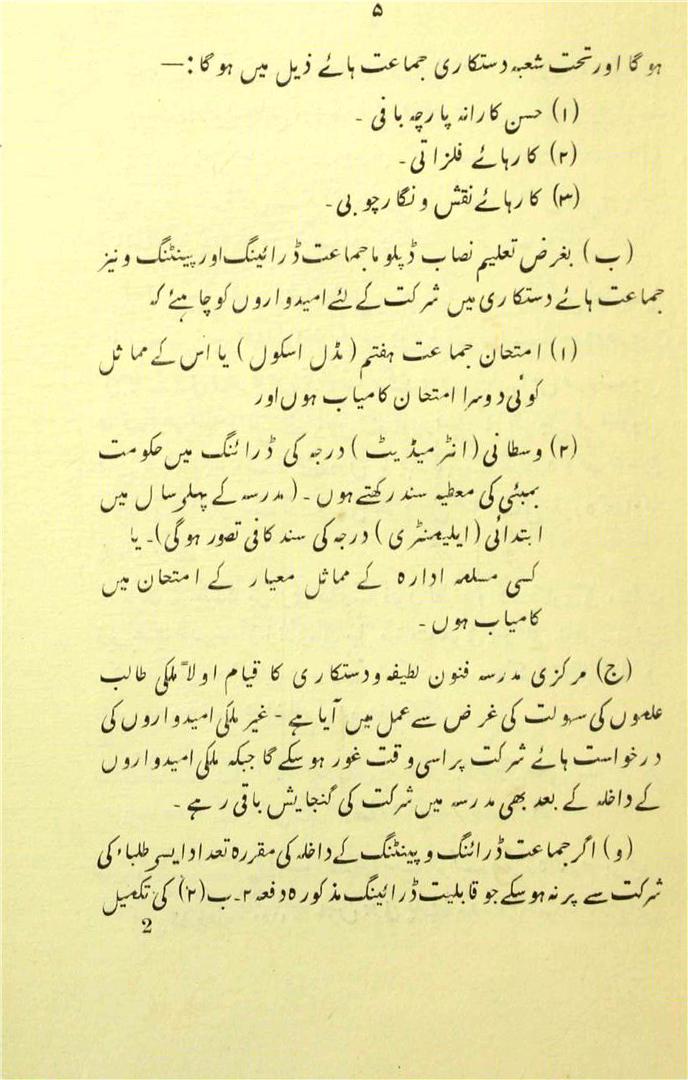 ۵
ہوگا اور تحت شعبہ دستکاری جماعت ہائے ذیل میں ہوگا :—
(۱) حسن کارانہ پارچہ بافی ۔
(۲) کارہائے فلزاتی ۔
(۳) کارہائے نقش و نگار چوبی ۔
(ب) بغرض تعلیم نصاب ڈپلوما جماعت ڈرائینگ اور پینٹنگ و نیز
جماعت ہائے دستکاری میں شرکت کے لئے امیدواروں کو چاہئے کہ
(۱) امتحان جماعت ہفتم (مڈل اسکول) یا اس کے مماثل
کوئی دوسرا امتحان کامیاب ہوں اور
(۲) وسطانی (انٹرمیڈیٹ) درجہ کی ڈرائنگ میں حکومت
بمبئی کی معطیہ سند رکھتے ہوں ۔ (مدرسہ کے پہلے سال میں
ابتدائی (ایلیمنٹری) درجہ کی سند کافی تصور ہوگی)۔ یا
کسی مسلمہ ادارہ کے مماثل معیار کے امتحان میں
کامیاب ہوں ۔
(ج) مرکزی مدرسہ فنون لطیفہ و دستکاری کا قیام اولاً ملکی طالب
علموں کی سہولت کی غرض سے عمل میں آیا ہے ۔ غیر ملکی امیدواروں کی
درخواست ہائے شرکت پر اسی وقت غور ہو سکے گا جبکہ ملکی امیدواروں
کے داخلہ کے بعد بھی مدرسہ میں شرکت کی گنجایش باقی رہے ۔
(و) اگر جماعت ڈرائنگ و پینٹنگ کے داخلہ کی مقررہ تعداد ایسے طلباء کی
شرکت سے پر نہ ہو سکے جو قابلیت ڈرائینگ مذکورہ دفعہ ۲۔ب(۲) کی تکمیل
2